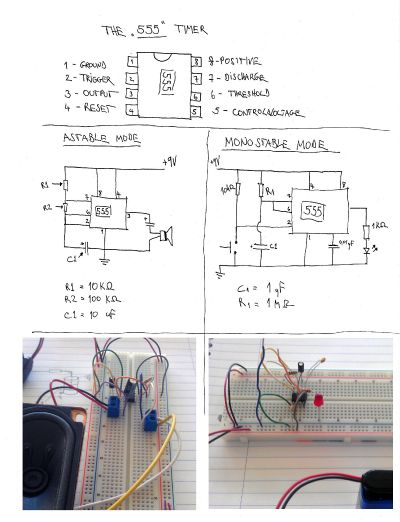 THE "555" TIMER
1 - GROUND
2 - TRIGGER
3 - OUTPUT
4 - RESET
1
2
3
4
555
8
7
6
5
8 - POSITIVE
7 - DISCHARGE
6 - THRESHOLD
5 - CONTROL VOLTAGE
ASTABLE MODE
+9V
R1
R2
7
6
2
4
8
555
3
1
C1
R1 = 10 KΩ
R2 = 100 KΩ
C1 = 10 uF
MONOSTABLE MODE
+9V
10KΩ
R1
7
6
2
4
8
555
3
1
5
C1
1KΩ
C1 = 1 µF
R1 = 1 MΩ